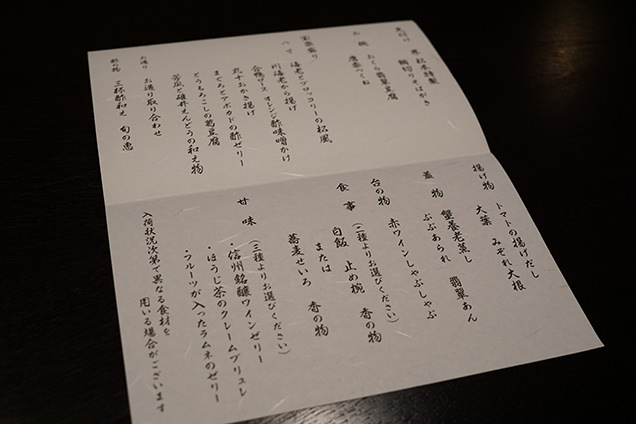 先付け 恵松本特製
鯛切りそばがき
お椀 おくら翡翠豆腐
唐黍つくね
宝楽盛り
一寸 海老とブロッコリーの松風
川海老から揚げ
合鴨ロース オレンジ酢味噌かけ
丸十おかき揚げ
まぐろとアボカドの酢ゼリー
とうもろこしの葛豆腐
苦瓜と碓井えんどうの和え物
お造り お造り取り合わせ
酢の物 三杯酢和え 旬の恵
揚げ物 トマトの揚げだし
大葉 みぞれ大根
蓋物 蟹養老蒸し 翡翠あん
ぶぶあられ
台の物 赤ワインしゃぶしゃぶ
食事 (二種よりお選びください)
白飯 止め椀 香の物
または
蕎麦せいろ 香の物
甘味 (三種よりお選びください)
・信州銘醸ワインゼリー
・ほうじ茶のクレームブリュレ
・フルーツが入ったラムネのゼリー
入荷状況次第で異なる食材を
用いる場合がございます